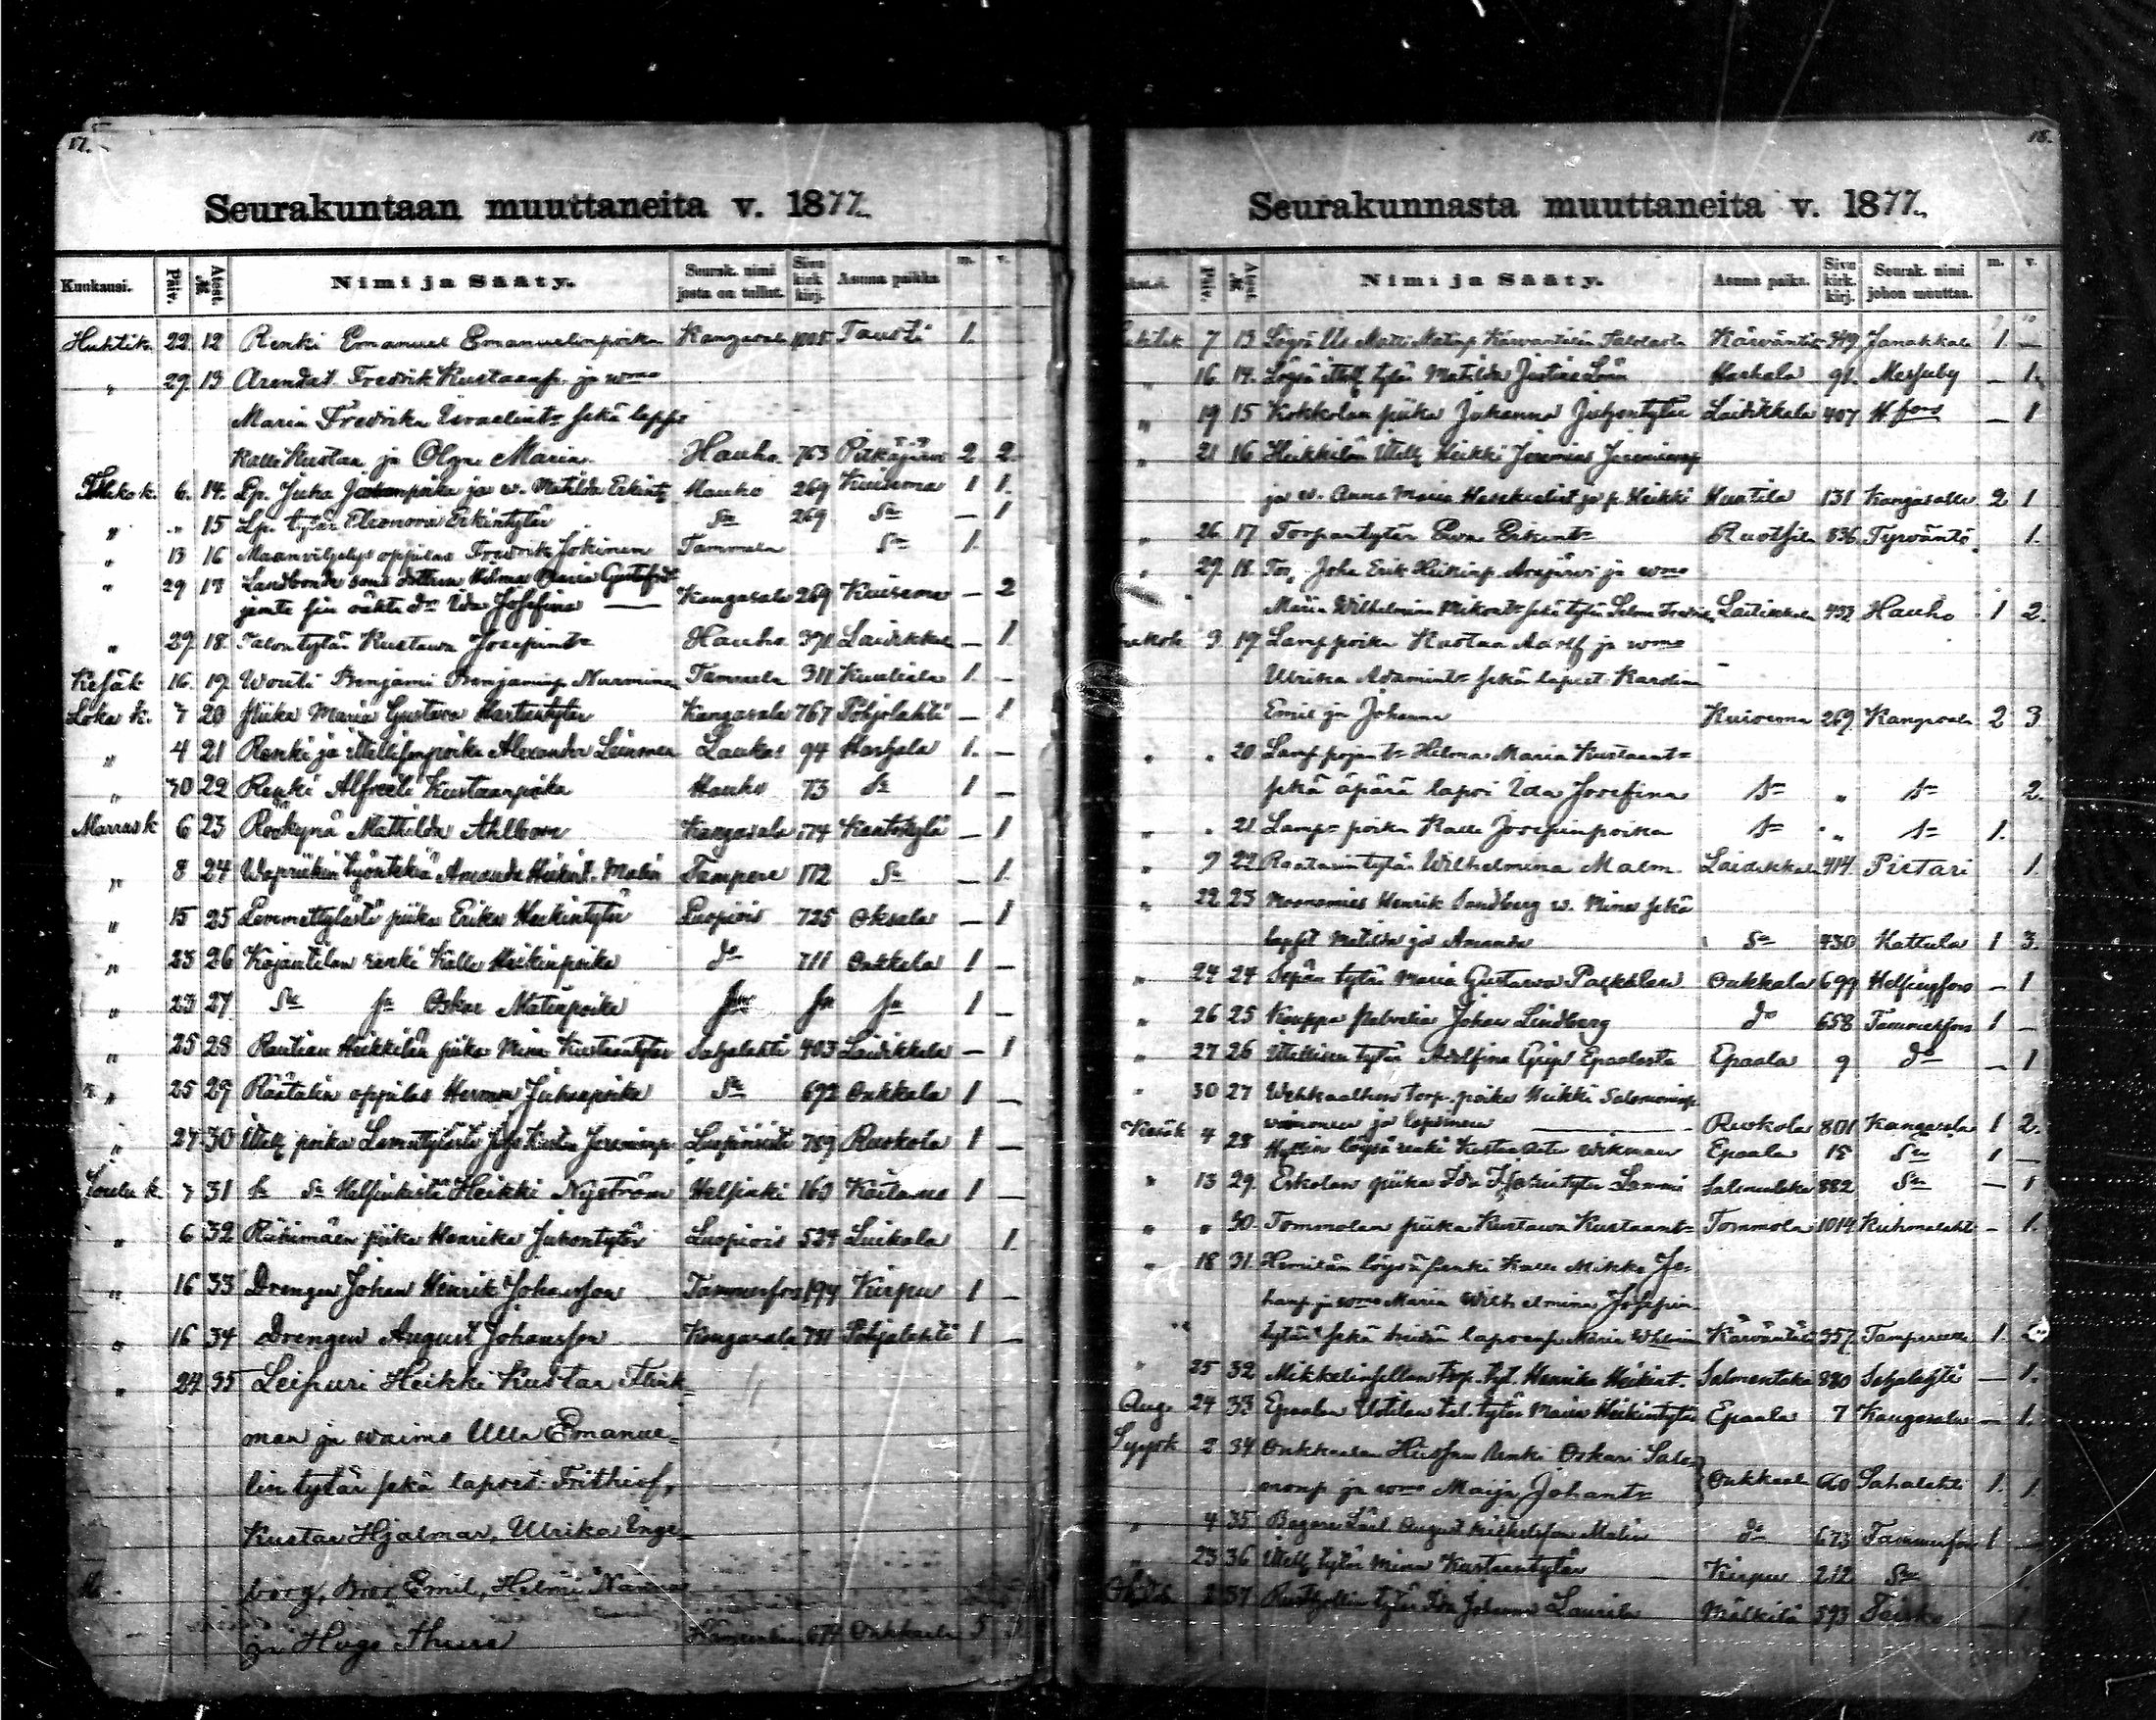 17.
Seurakuntaan muuttaneita v. 1877.
Kuukausi. Päiv. Atest. № Nimi ja Sääty. Seurak. nimi josta on tullut. Sivu kirk. kirj. Asuma paikka m. v.
Huhtik. 22. 12 Renki Emanuel Emanuelinpoika Kangasala 1005 Tausti 1.
" 29. 13 Arendat. Fredrik Kustaanp. ja wmo
Maria Fredrika Israelint= sekä laps.
Kalle Kustaa ja Olga Maria. Hauho 763 Pitkäjärvi 2 2
Toukok. 6. 14. Lp. Juha Juhanpoika ja w. Matilda Erkint. Hauho 269 Kuisema 1 1.
" " 15 Lp. tytär Eleonora Erkintytär Sa 269 Sa — 1
" 13 16 Maanviljelys oppilas Fredrik Jokinen Tammela Sa 1.
" 29 17 Landbonde sons dottren Hilma Maria Gustafsd
jemte sin oäkta dr Ida Josefina — Kangasala 269 Kuisema — 2
" 29. 18. Talontytär Kustawa Josefint= Hauho 370 Laidikkala — 1.
Kesäk 16. 19. Wouti Benjami Benjaminp. Nurminen Tammela 311 Kuuliala 1. -
Loka k. 7 20 Piika Maria Gustava Kustaantytär Kangasala 767 Pohjalahti — 1
" 4 21 Renki ja itsellisenpoika Alexander Leinonen Laukas 94 Harhala 1. —
" 30 22 Renki Alfreeti Kustaanpoika Hauho 73 Sa 1 —
Marrask 6 23 Mathilda Ahlbom Kangasala 574 Kantokylä — 1
" 8 24 Waprikin työntekiä Amanda Heikint. Malin Tampere 172 Sa — 1.
" 15 25 Lemmettylästä piika Erika Heikintytär Luopiois 725 Oksala — 1
" 23 26 Kojantilan renki Kalle Heikinpoika do 711 Onkkala 1 —
" 23 27 Sa Sa Oskar Matinpoika Sa Sa 1 —
" 25 28 Rautian Heikkilän piika Mina Kustaantytär Sahalahti 403 Laidikkala — 1
" 25 29 Räätälin oppilas Herman Juhanpoika Sa 692 Onkkala 1 —
" 27 30 Itell. poika Lemetylästä Kustaa Jeremianp. Luopioista 789 Ruokola 1 —
Joulu k. 7 31 Sa Sa Helsinkistä Heikki Nyström Helsinki 160 1 —
" 6 32 Riihimäen piika Henrika Juhontytär Luopiois 524 Luikala 1.
" 16 33 Drengen Johan Henrik Johansson Tammerfors 194 Kirpu 1 —
" 16 34 Drengen August Johansson Kangasala 781 Pohjalahti 1 —
" 24 35 Leipuri Heikki Kustaa Flink-
man ja waimo Ulla Emanue=
lin tytär sekä lapset Frithiof,
Kustaa Hjalmar, Ulrika Inge-
borg, Bror Emil, Helmi Nanna
ja Hugo Thure 674 Onkkala 5
18.
Seurakunnasta muuttaneita v. 1877.
Päiv. Atest. № Nimi ja Sääty. Asuma paika. Sivu kirk. kirj. Seurak. nimi johon muuttaa. m. v.
7 13 Matti Matinp. Kärväntilä 349 Janakkala 1 —
" 16. 14. Löysä Itsell. tytär Matilda Harhala 91. Messuby — 1.
" 19 15 Kokkolan piika Johanna Juhontytär Laidikkala 407 H:fors — 1
" 21 16 Heikkilän Itsell. Heikki Jeremias Jeremianp
ja w. Anna Maria ja p. Heikki Huntila 131 Kangasalle 2 1
" 26. 17 Torpantytär Ewa Erkint= Ruotsila 836 Tyrväntö. 1.
" 29. 18. Tor. Joha Erik Heikinp. ja wmo
Maria Wilhelmina Mikont= sekä tytär Selma Laidikkala 432 Hauho 1 2.
9 19 Lamppoika Kustaa Adolf ja wmo
Ulrika Adamint= sekä lapset Karolina
Emil ja Johanna Kuisema 269. Kangasala 2 3
" " 20 Lampp.pojan t= Hilma Maria Kustaant=
sekä äpärä lapsi Ida Josefina Sa " Sa 2.
" " 21 Lamp= poika Kalle Josefinpoika Sa " Sa 1.
" 9 22 Raatarintytär Wilhelmina Malm Laidikkala 414. Pietari 1.
" 22 23 Henrik Sandberg w. Mina sekä
lapset Matilda ja Amanda Sa 430 Hattula 1 3.
" 24 24 Sepän tytär Maria Gustawa Onkkala 699 Helsingfors — 1
" 26 25 Kauppa palvelia Johan Lindberg do 658 Tammerfors 1 —
" 27 26 Itsellisen tytär Adolfina Grip Epaalasta Epaala 9 do — 1
" 30 27 torp. poika Heikki Salomoninp
waimonensa ja lapsinensa — Ruokola 801 Kangasala 1 2.
Kesäk 4 28 Hyttin löysä renki Kustaa Wikman Epaala 15 Sa 1 —
" 13 29. Eskolan piika Ida Lammi Salmentaka 882 Sa — 1
" " 30. Tommolan piika Kustawa Kustaant= Tommola 1014 Kuhmalahti — 1.
" 18 31. löysä renki Kalle Mikko Jo-
hanp ja wmo Maria Wilhelmina Josefin
tytär sekä heidän lapsensa Maria Kärväntilä 357. Tampereelle 1.
" 25 32 torp. tyt. Henrika Heikint. Salmentaka 880 Sahalahti — 1.
Aug. 24 33 Epaalan Uotilan tal. tytär Maria Heikintytär Epaala 7 Kangasala — 1.
Syysk 2 34 Onkkaalan Renki Oskari Salo-
monp ja wmo Maija Johant= Onkkaala Sahalahti 1. 1.
" 4 35 Bagare August Malin do 673 Tammerfors 1 —
" 23 36 Itsell. tytär Mina Kustaantytär Kirpu 212 Sa
2 37 tytär Ida Johanna Laurila Mälkilä 593 — 1.